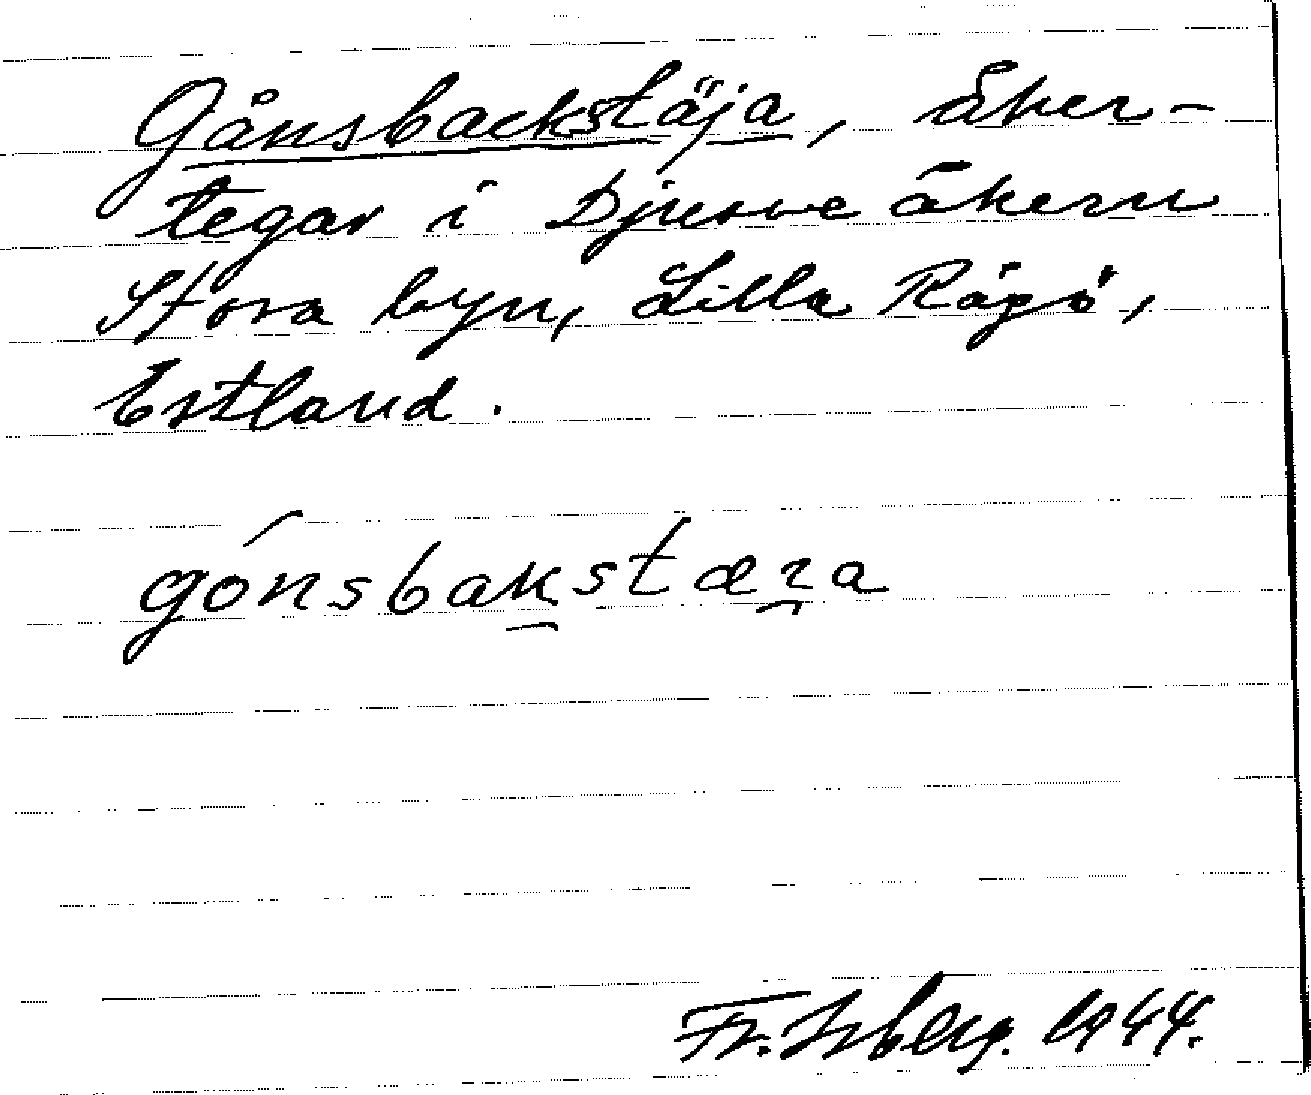 Gånsbackstäja, åker-
tegar i Djusve åkern
Stora byn, Lilla Rågö,
Estland.
gónsbakstæꝛa
Fr. Isberg. 1944.